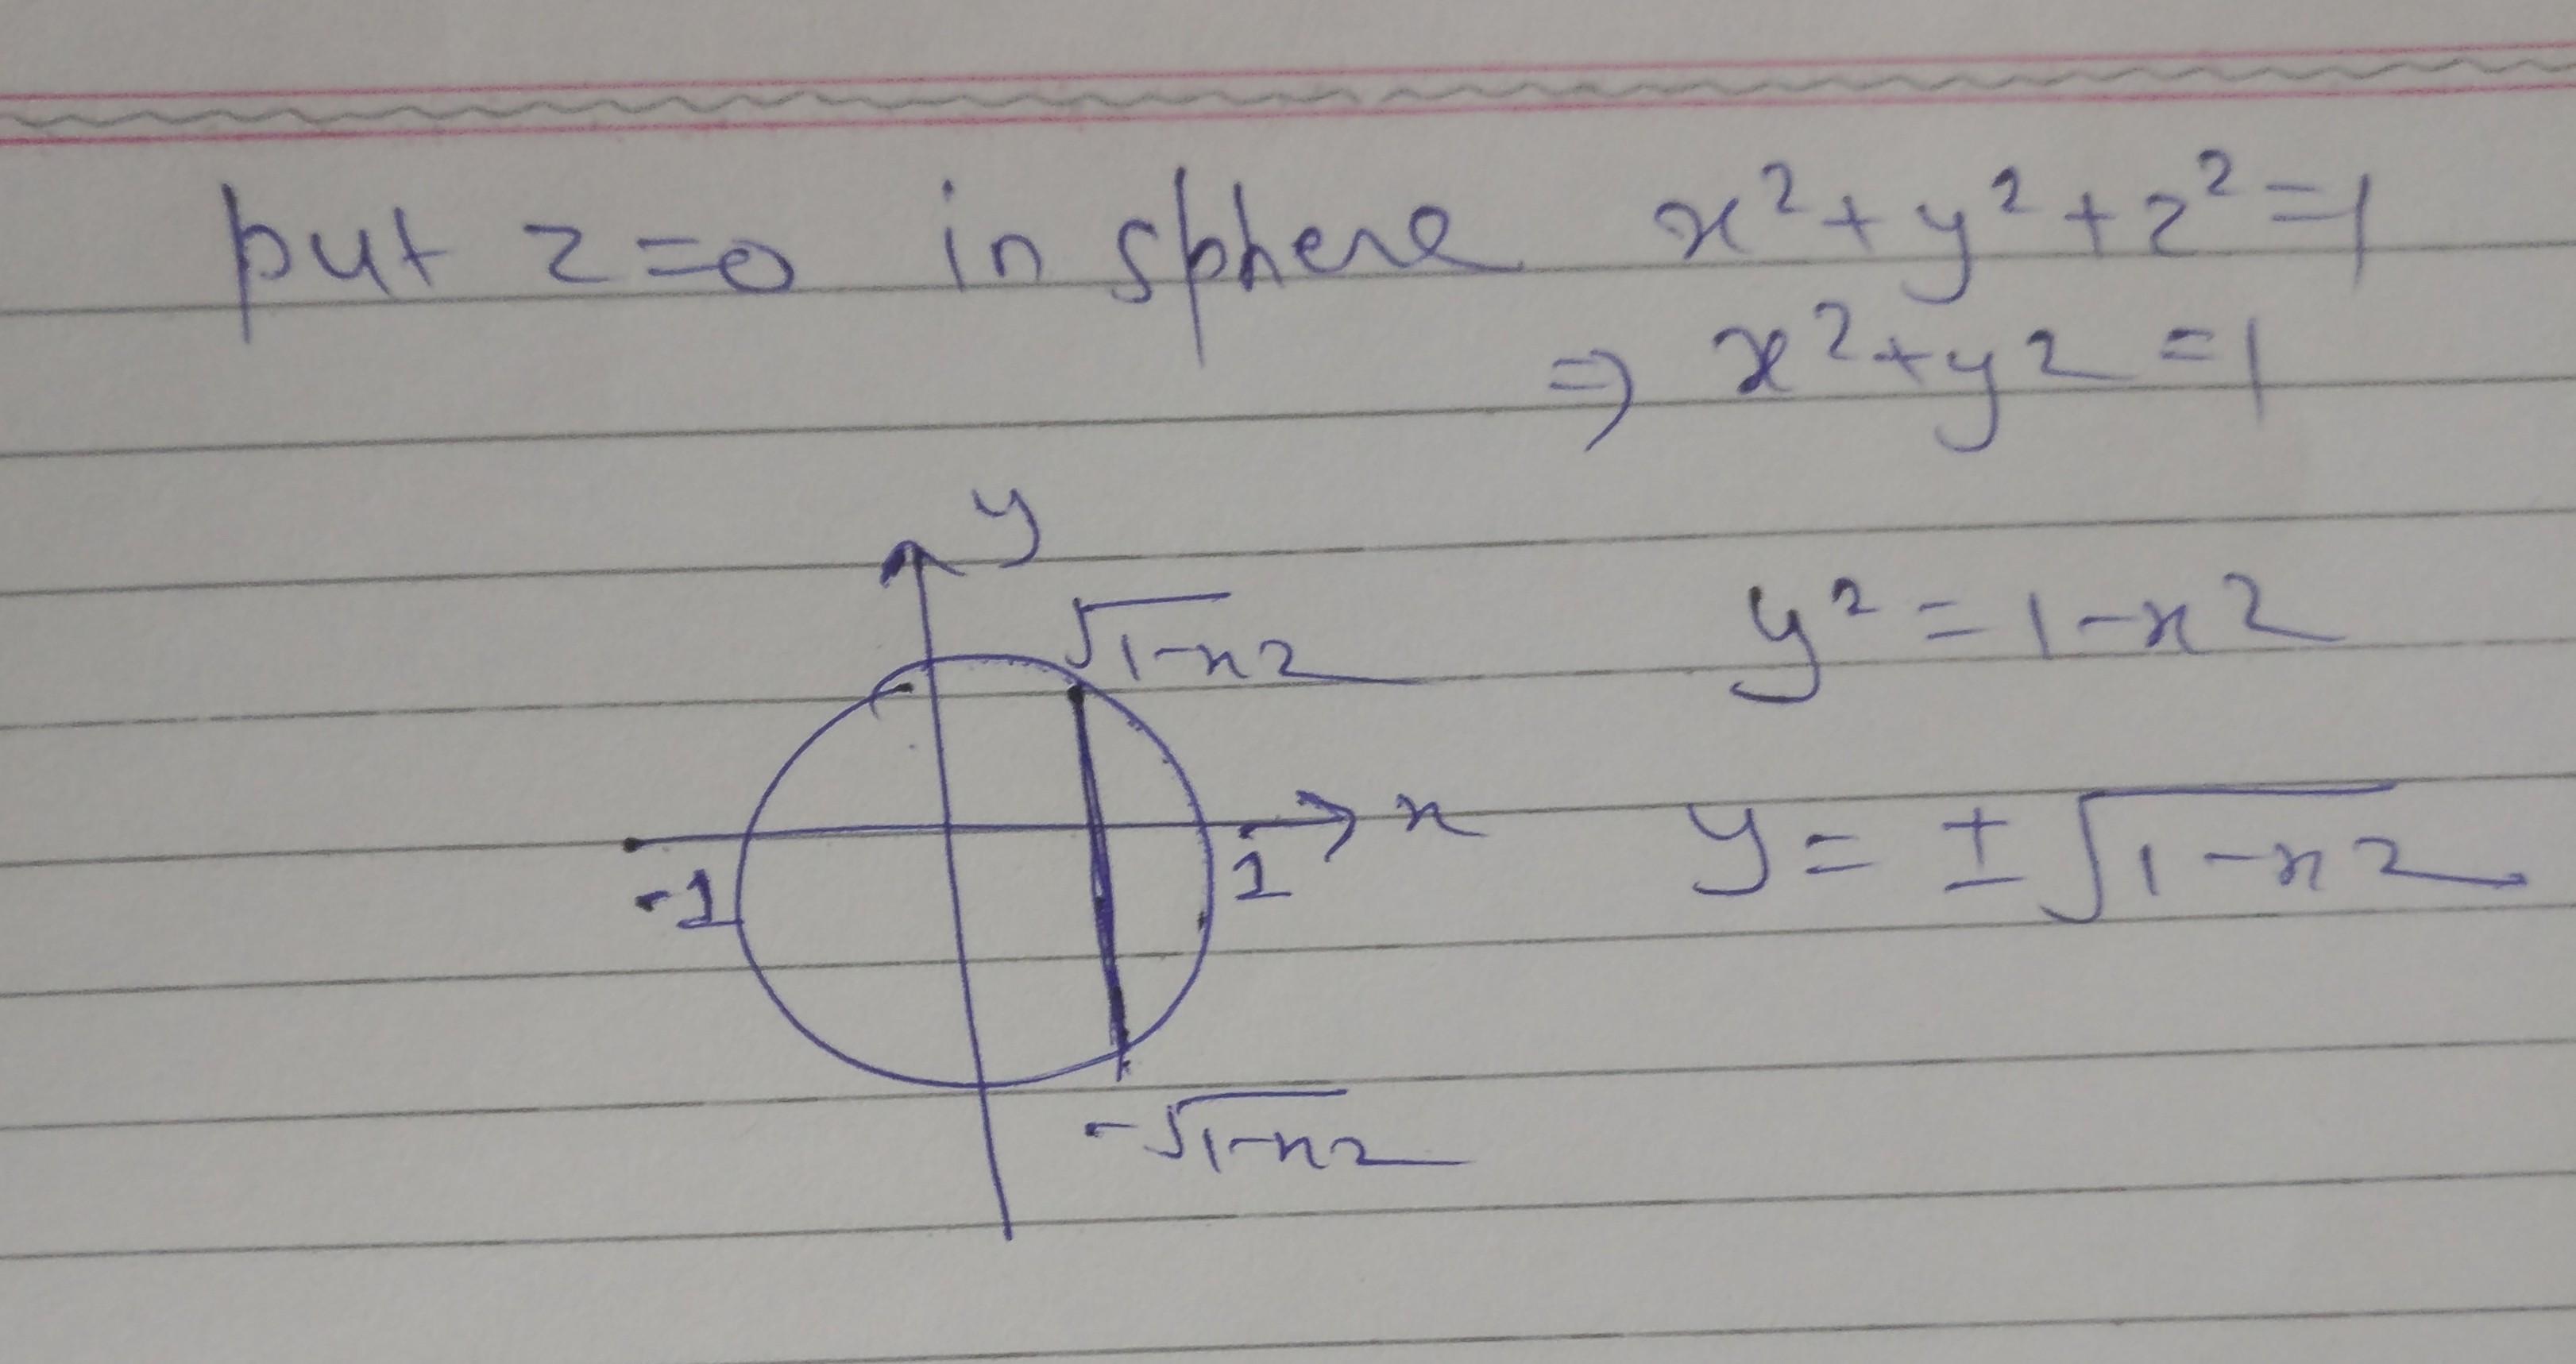 put z=0 in sphere x²+y²+z²=1
⇒ x²+y2 =1
y
√1-x2
y² = 1-x2
x
-1
1
y= ±√1-x2
-√1-x2